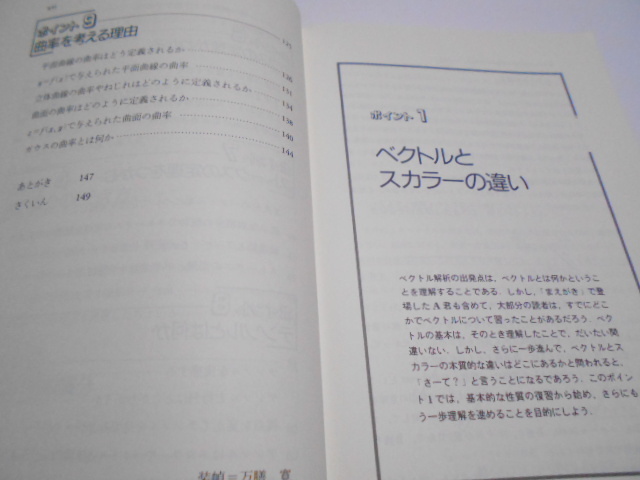 ポイント 9
曲率を考える理由 125
平面曲線の曲率はどう定義されるか
y=f(x)で与えられた平面曲線の曲率 128
立体曲線の曲率やねじれはどのように定義されるか 131
曲面の曲率はどのように定義されるか 134
z=f(x, y)で与えられた曲面の曲率 138
ガウスの曲率とは何か 140
144
あとがき 147
さくいん 149
装幀＝万膳 寛
ポイント 1
ベクトルと
スカラーの違い
ベクトル解析の出発点は、ベクトルとは何かというこ
とを理解することである．しかし，「まえがき」で登
場した A 君も含めて，大部分の読者は，すでにどこ
かでベクトルについて習ったことがあるだろう．ベク
トルの基本は，そのとき理解したことで，だいたい間
違いない．しかし，さらに一歩進んで，ベクトルとス
カラーの本質的な違いはどこにあるかと問われると，
「さーて？」と言うことになるであろう．このポイン
ト1では，基本的な性質の復習から始め，さらにも
う一歩理解を進めることを目的にしよう．